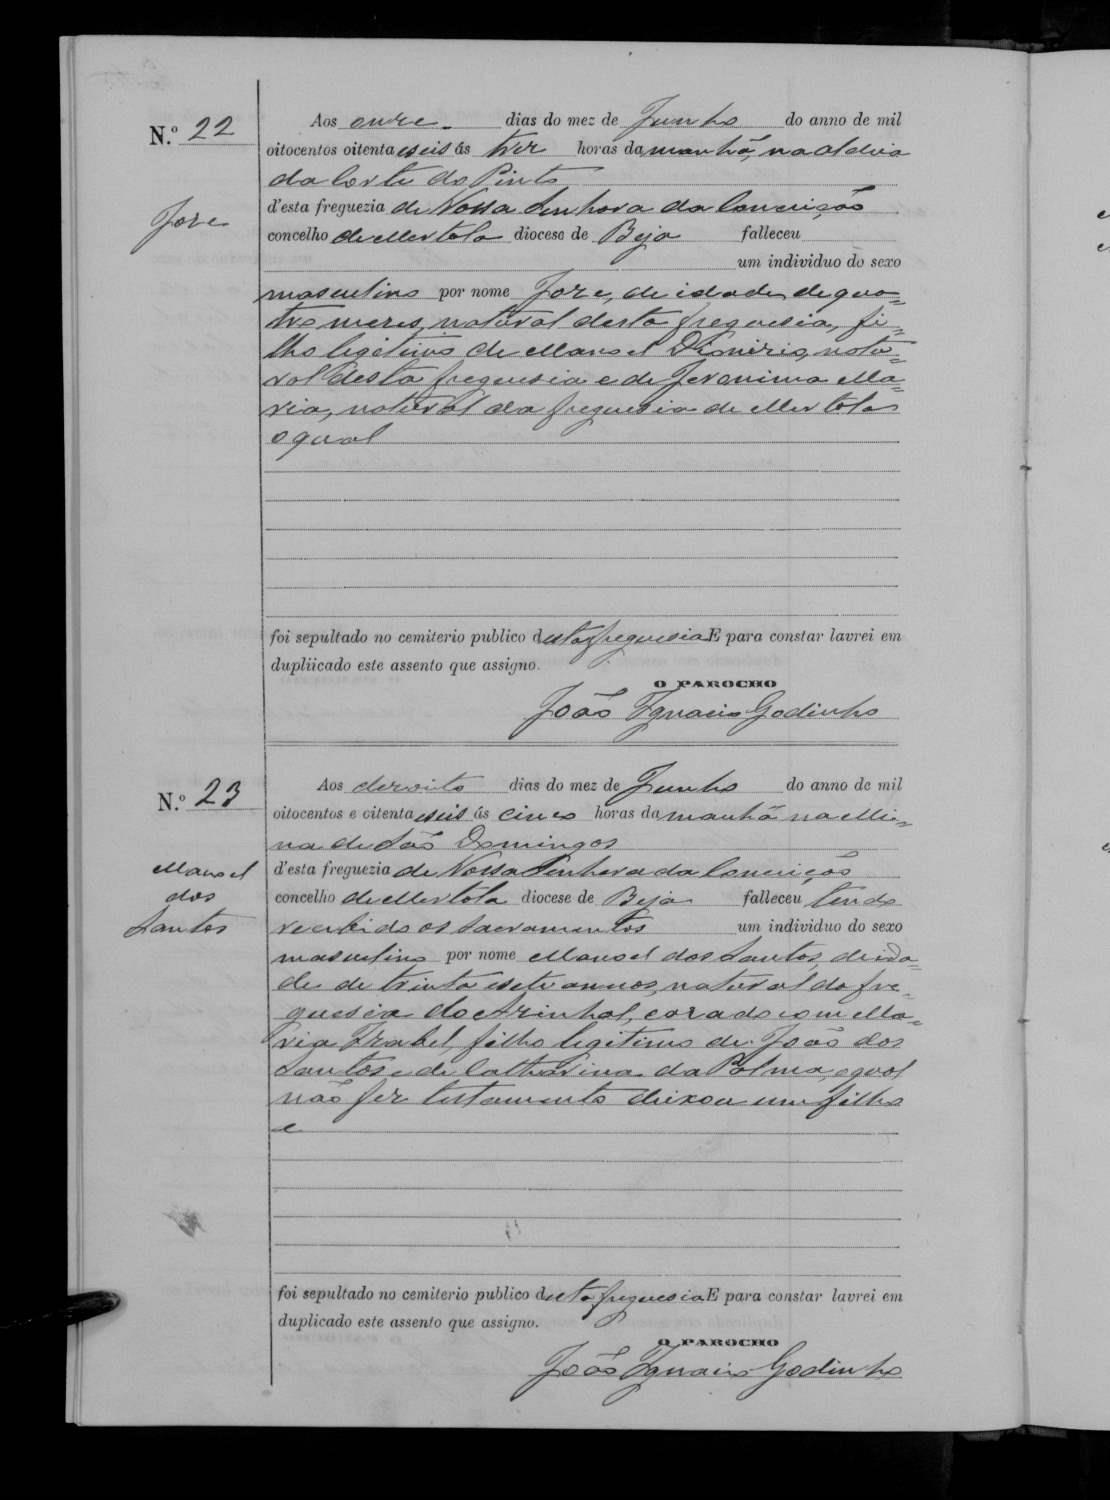 N.º 22
José
Aos onze dias do mez de Junho do anno de mil
oitocentos oitenta e seis ás tres horas da manhã, na aldeia
da Corte do Pinto
d'esta freguezia de Nossa Senhora da Conceição
concelho de Mertola diocese de Beja falleceu
um individuo do sexo
masculino por nome José, de idade de qua=
tro mezes, natural desta freguesia, fi=
lho legitimo de Manoel natu=
ral desta freguesia e de Jeronima Ma=
ria, natural da freguesia de Mertola
o qual
foi sepultado no cemiterio publico desta freguesia E para constar lavrei em
dupliicado este assento que assigno.
O PAROCHO
João Ignacio Godinho
N.º 23
Manoel
dos
Santos
Aos dezoito dias do mez de Junho do anno de mil
oitocentos e oitenta e seis ás cinco horas da manhã na Mi=
na de São Domingos
d'esta freguezia de Nossa Senhora da Conceição
concelho de Mertola diocese de Beja falleceu tendo
recebido os sacramentos um individuo do sexo
masculino por nome Manoel dos Santos, de ida=
de de trinta e sete annos, natural da fre=
guesia do Arinhal, casado com Ma=
ria Izabel, filho legitimo de João dos
Santos e de Catharina da Palma, o qual
não fez testamento deixou um filho
e
foi sepultado no cemiterio publico desta freguesia E para constar lavrei em
duplicado este assento que assigno.
O PAROCHO
João Ignacio Godinho